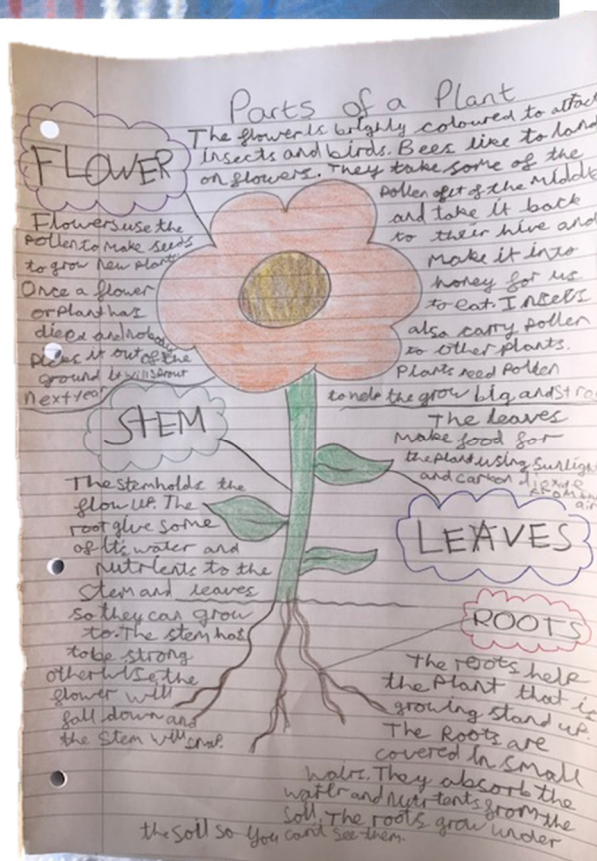 Parts of a Plant
FLOWER
The flower is brightly coloured to attact
insects and birds. Bees like to land
on flowers. They take some of the
pollen of the middle
and take it back
to their hive and
make it into
honey for us
to eat. Insects
also carry pollen
to other plants.
Plants need pollen
to help the grow big and
Flowers use the
pollen to make seeds
to grow new plant
Once a flower
or plant has
died and nobody
picks it out of the
ground it will sprout
next year
STEM
The stem holds the
flow up. The
root give some
of its water and
nutrients to the
stem and leaves
so they can grow
to. The stem has
to be strong
otherwise the
flower will
fall down and
the stem will snap.
The leaves
make food for
the plant using sunligh
and carbon dioxide
from
air
LEAVES
ROOTS
The roots help
the plant that is
growing stand up.
The Roots are
covered in small
hairs. They absorb the
water and nutrients from the
soil. The roots grow under
the soil so you can't see them.